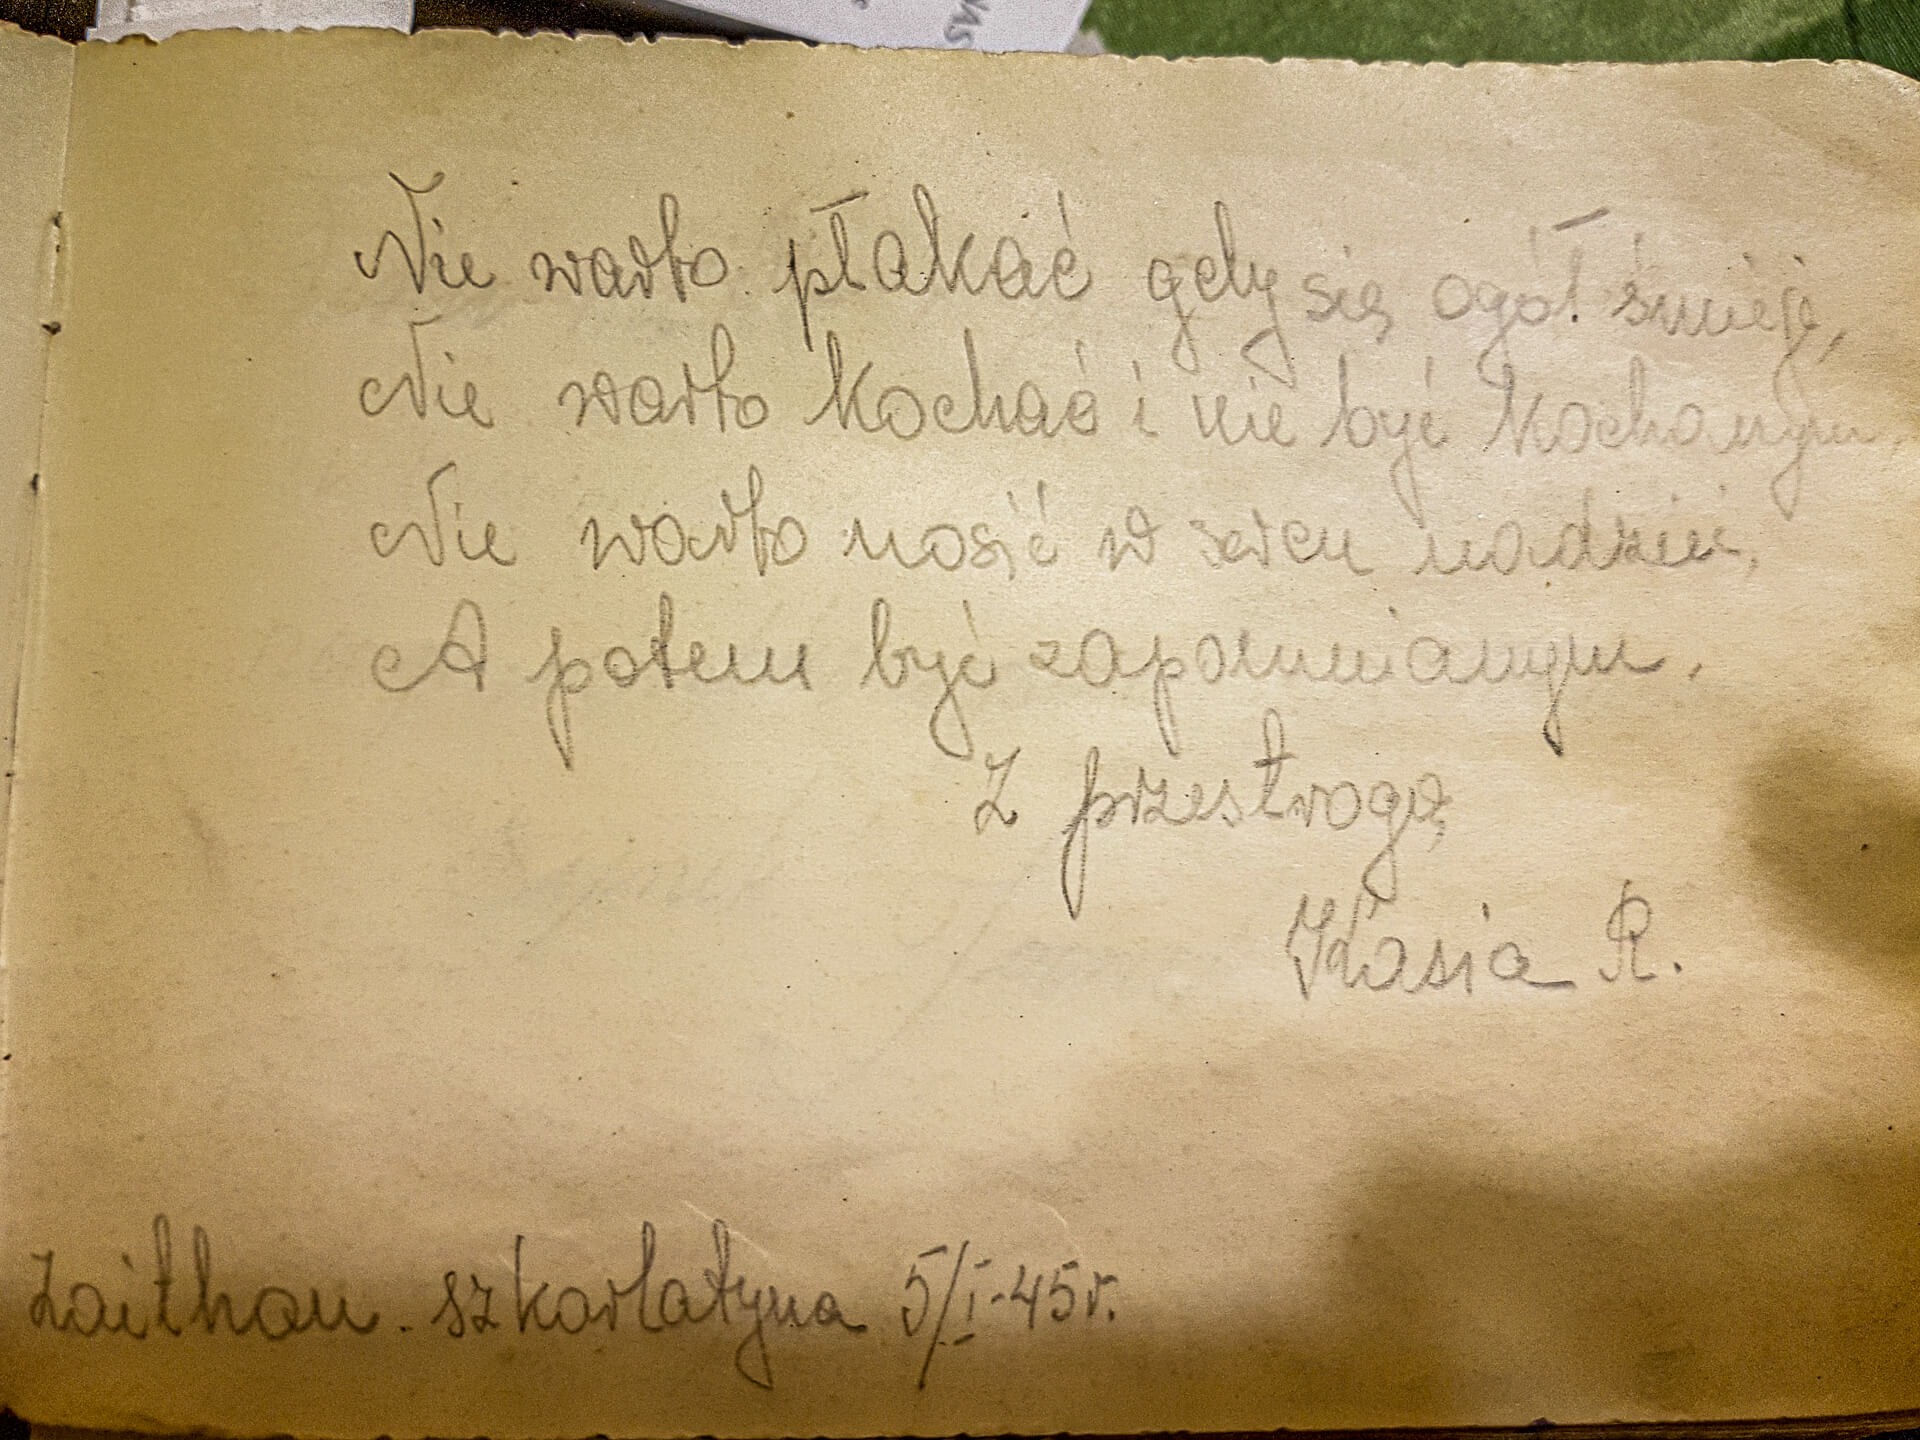 Nie warto płakać gdy się ogół śmieje,
Nie warto kochać i nie być kochanym
Nie warto nosić w sercu nadzieję,
A potem być zapomnianym.
Z przestrogą
Kasia R.
Zaithau. szkarlatyna 5/I-45r.